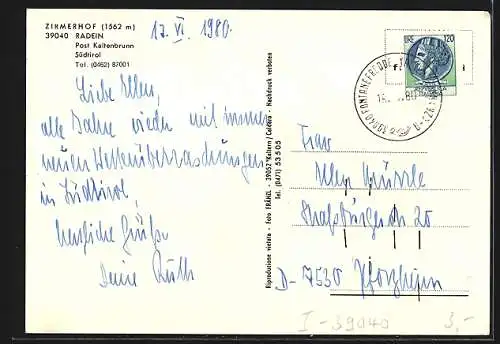 ZIRMERHOF (1562 m)
39040 RADEIN
Post Kaltenbrunn
Südtirol
Tel. (0462) 87001
17. VI. 1980.
Liebe Ellen,
alle Jahre wieder mit immer
neuen Wetterüberraschungen
in Südtirol,
herzliche Grüße
Deine Ruth
Riproduzione vietata - Foto FRÄNZL - 39052 Kaltern/Caldaro - Nachdruck verboten
Tel. (0471) 53 5 05
LIRE 120
39040 FONTANEFREDDE
Frau
Ellen
Straßburgerstr. 20
D-7530 Pforzheim
I-39040
3,-